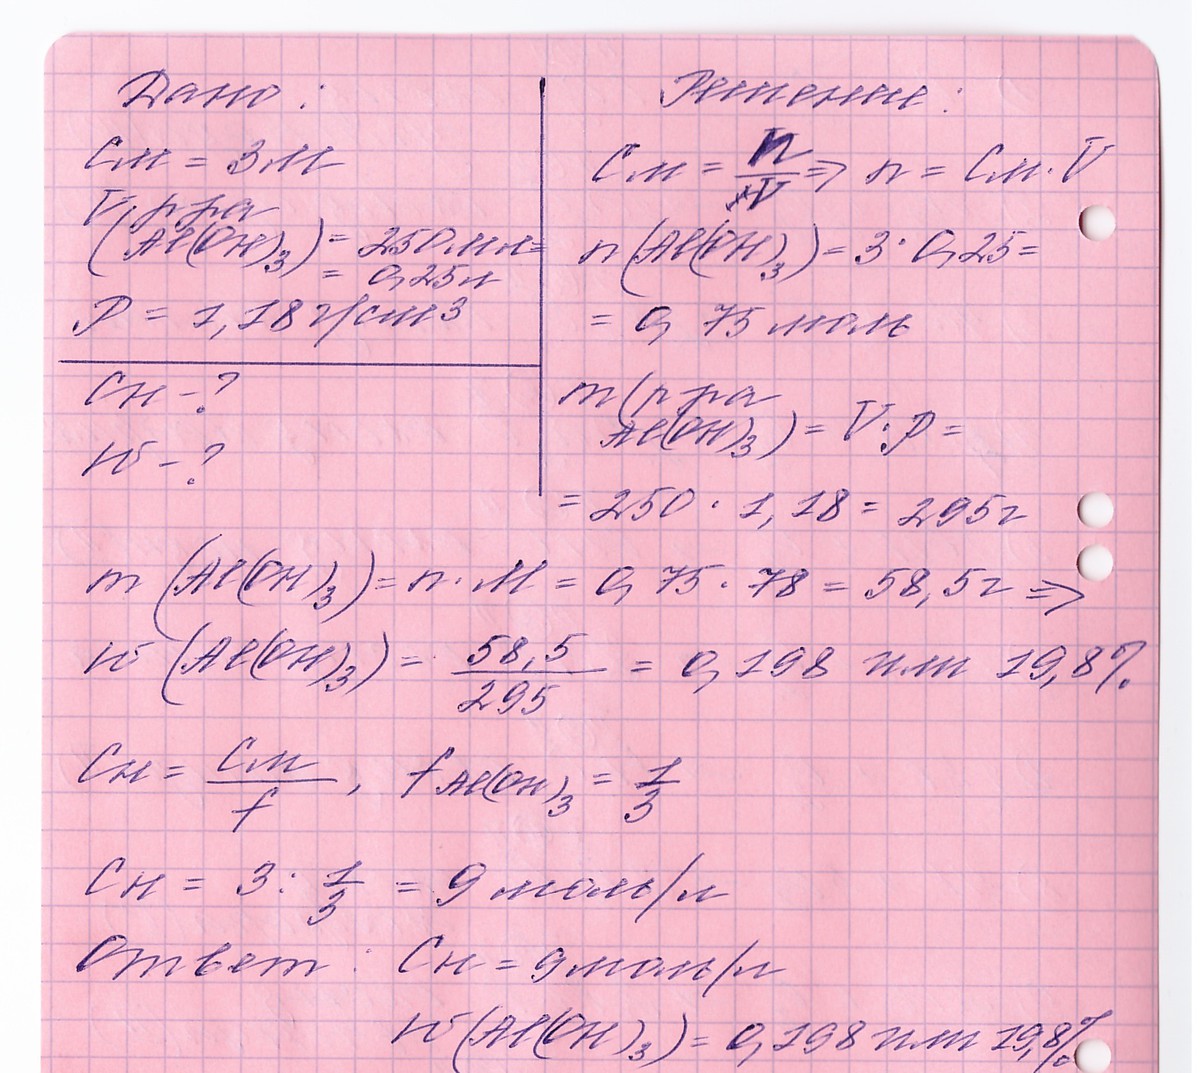 Дано:
См = 3М
V(р-ра
Al(OH)₃) = 250мл=
= 0,25л
ρ = 1,18 г/см3
Сн - ?
W - ?
Решение:
См = n/V => n = См·V
n(Al(OH)₃) = 3·0,25=
= 0,75 моль
m(р-ра
Al(OH)₃) = V·ρ =
= 250·1,18 = 295г
m(Al(OH)₃) = n·M = 0,75·78 = 58,5г =>
W(Al(OH)₃) = 58,5/295 = 0,198 или 19,8%
Сн = См/f, f Al(OH)₃ = 1/3
Сн = 3 : 1/3 = 9 моль/л
Ответ: Сн = 9моль/л
W(Al(OH)₃) = 0,198 или 19,8%